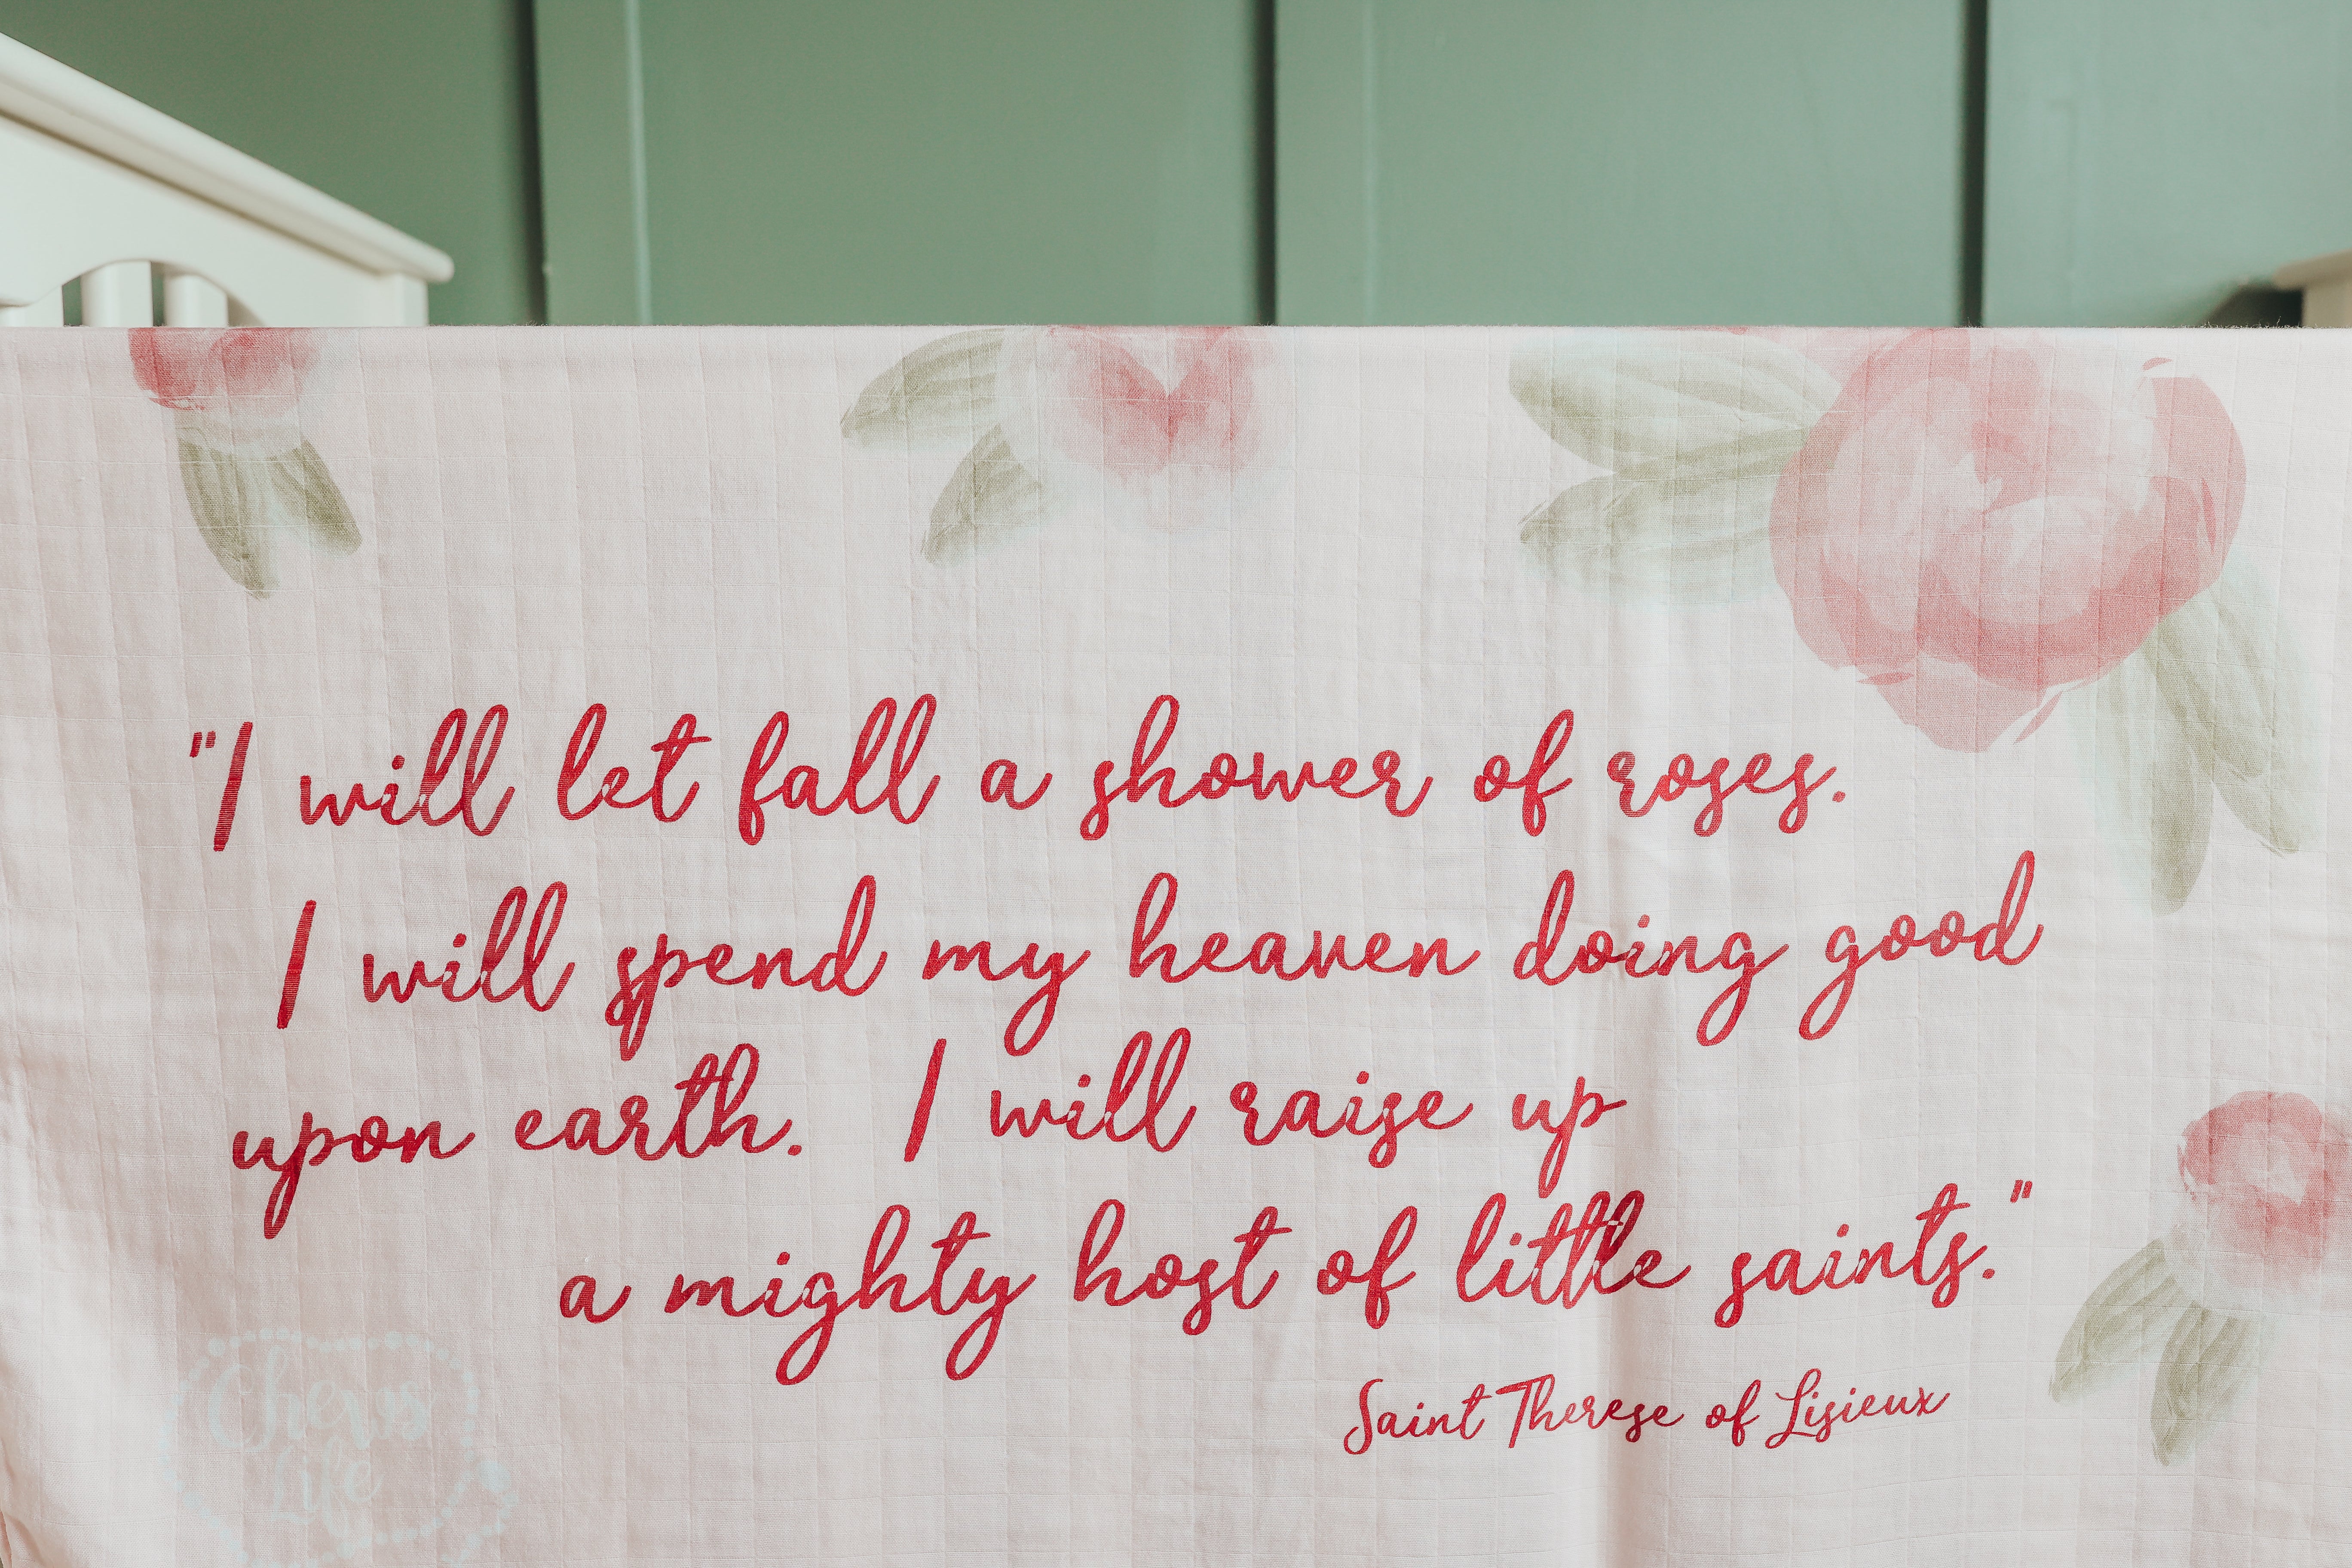 "I will let fall a shower of roses.
I will spend my heaven doing good
upon earth. I will raise up
a mighty host of little saints."
Saint Therese of Lisieux
Cheris
Life